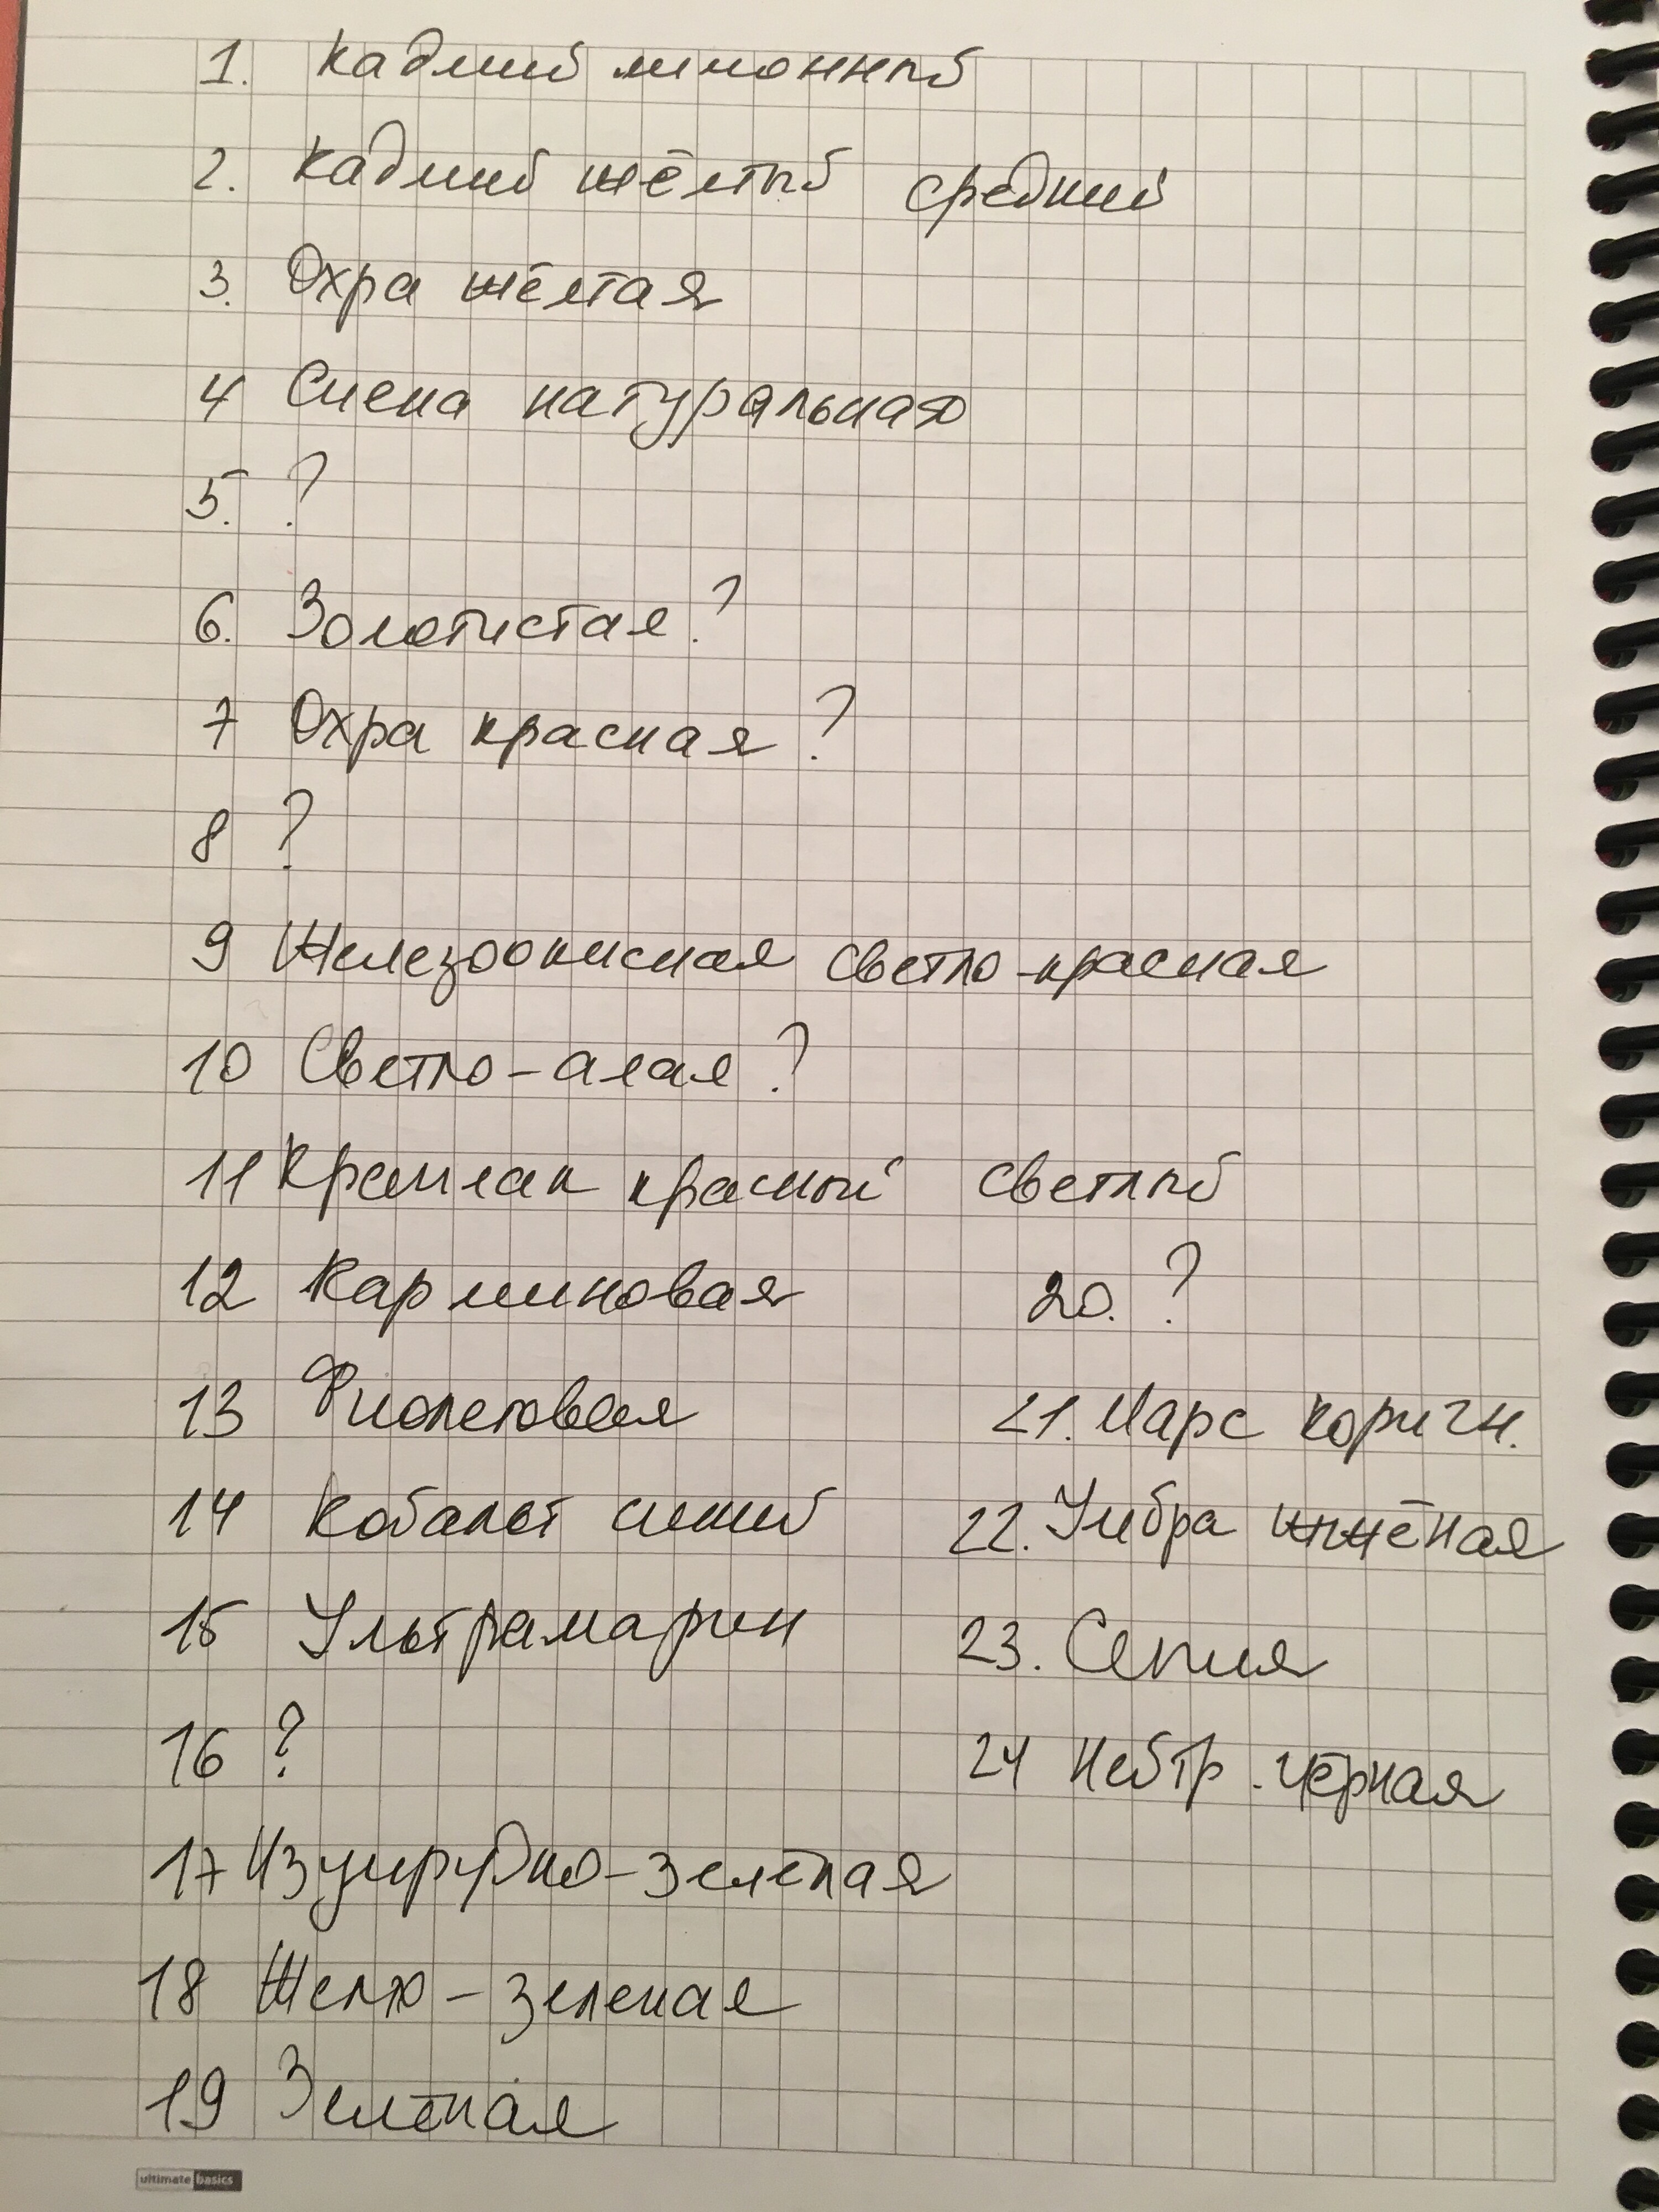 1. Кадмий лимонный
2. Кадмий жёлтый средний
3. Охра жёлтая
4 Сиена натуральная
5. ?
6. Золотистая?
7 Охра красная?
8 ?
9 Железоокисная светло-красная
10 Светло-алая?
11 Краплак красный светлый
12 Карминовая
13 Фиолетовая
14 Кобальт синий
15 Ультрамарин
16 ?
17 Изумрудно-зелёная
18 Желто-зеленая
19 Зелёная
20. ?
21. Марс коричн.
22. Умбра жжёная
23. Сепия
24 Нейтр. чёрная
ultimate basics